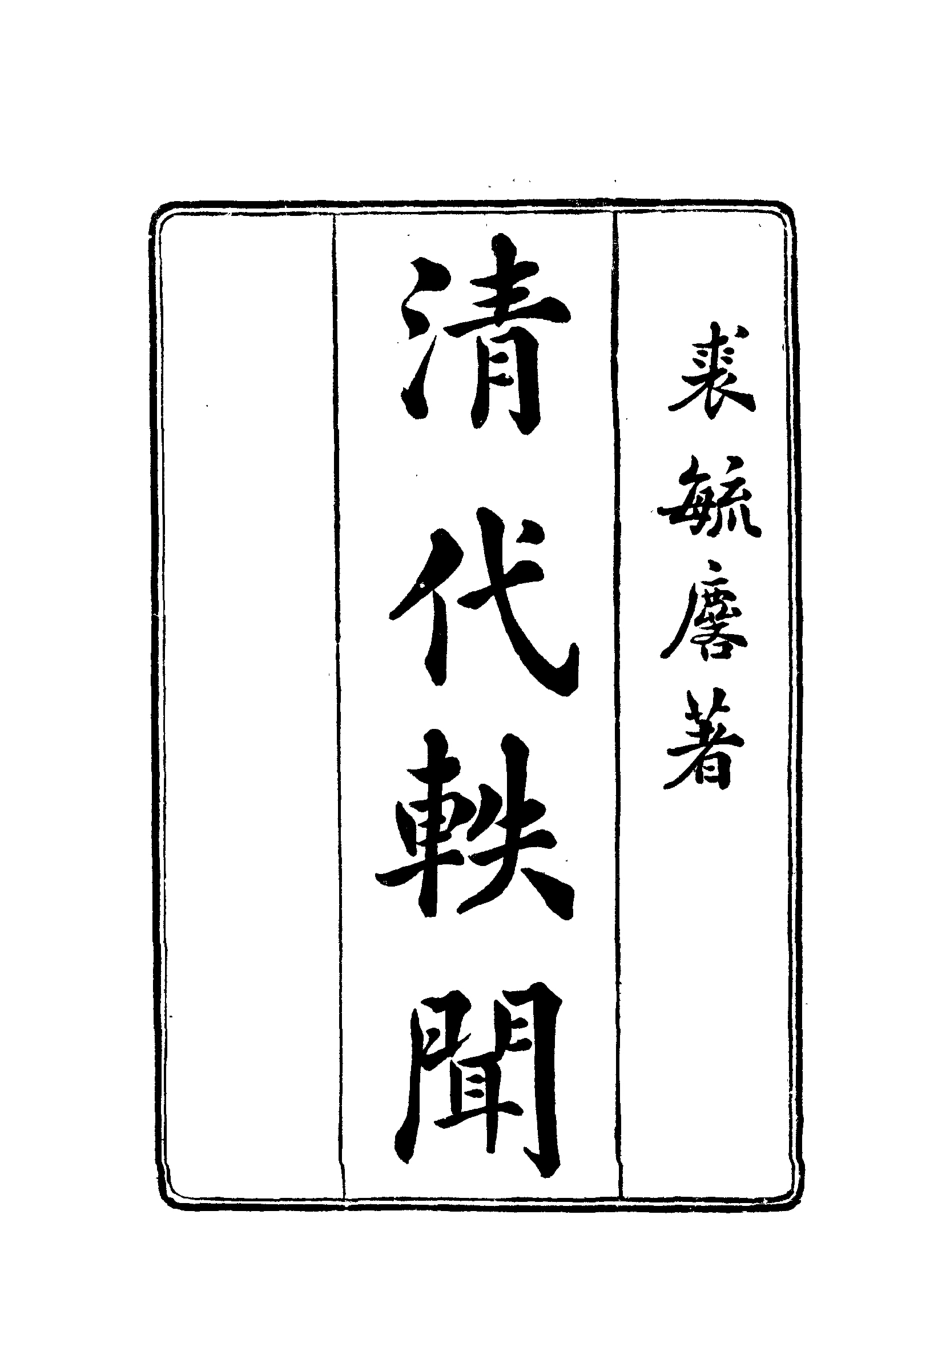 裘毓麐著
清代軼聞